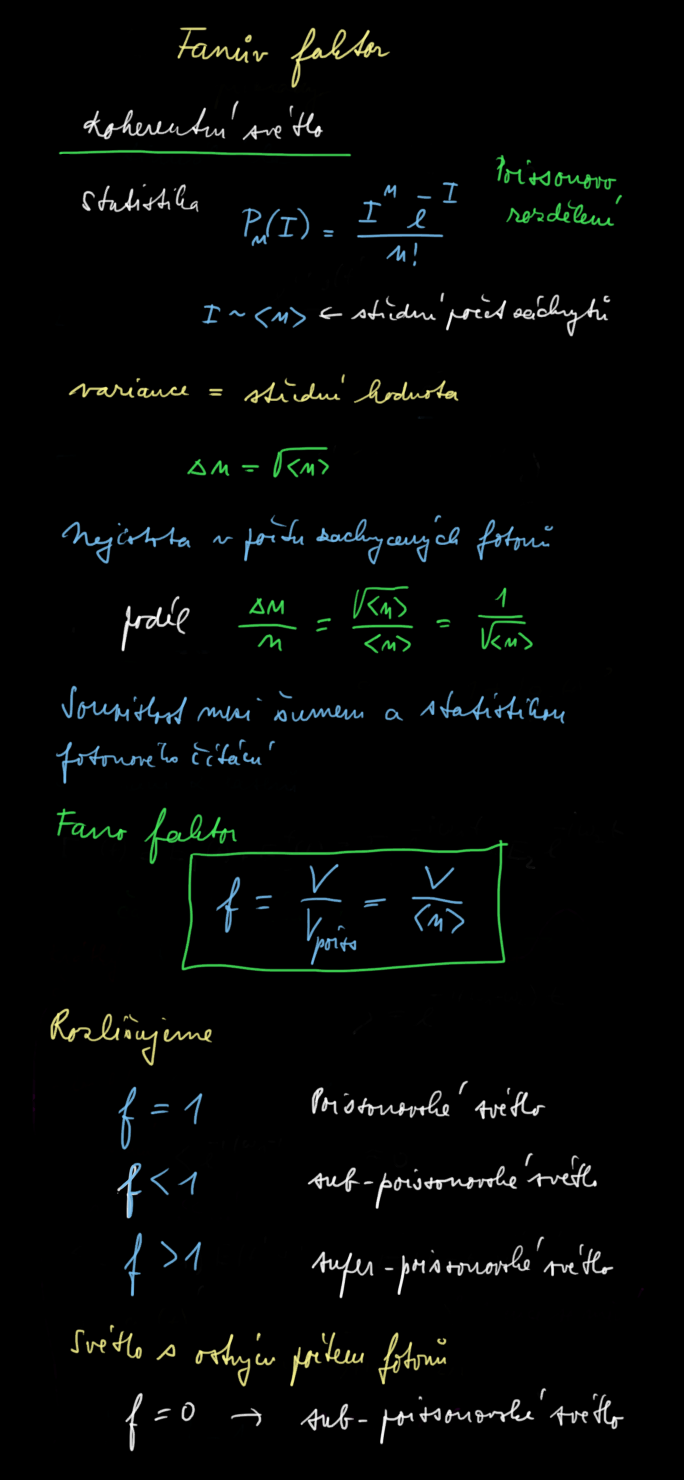 Fanův faktor
koherentní světlo
Statistika
Pₙ(I) = Iⁿ e⁻ᴵ / n!
Poissonovo
rozdělení
I ~ <n> ← střední počet záchytů
variance = střední hodnota
Δn = √<n>
Nejistota v počtu zachycených fotonů
podíl Δn / n = √<n> / <n> = 1 / √<n>
Souvislost mezi šumem a statistikou
fotonového čítání
Fano faktor
f = V / Vpoiss = V / <n>
Rozlišujeme
f = 1 Poissonovské světlo
f < 1 sub-poissonovské světlo
f > 1 super-poissonovské světlo
Světlo s ostrým počtem fotonů
f = 0 → sub-poissonovské světlo